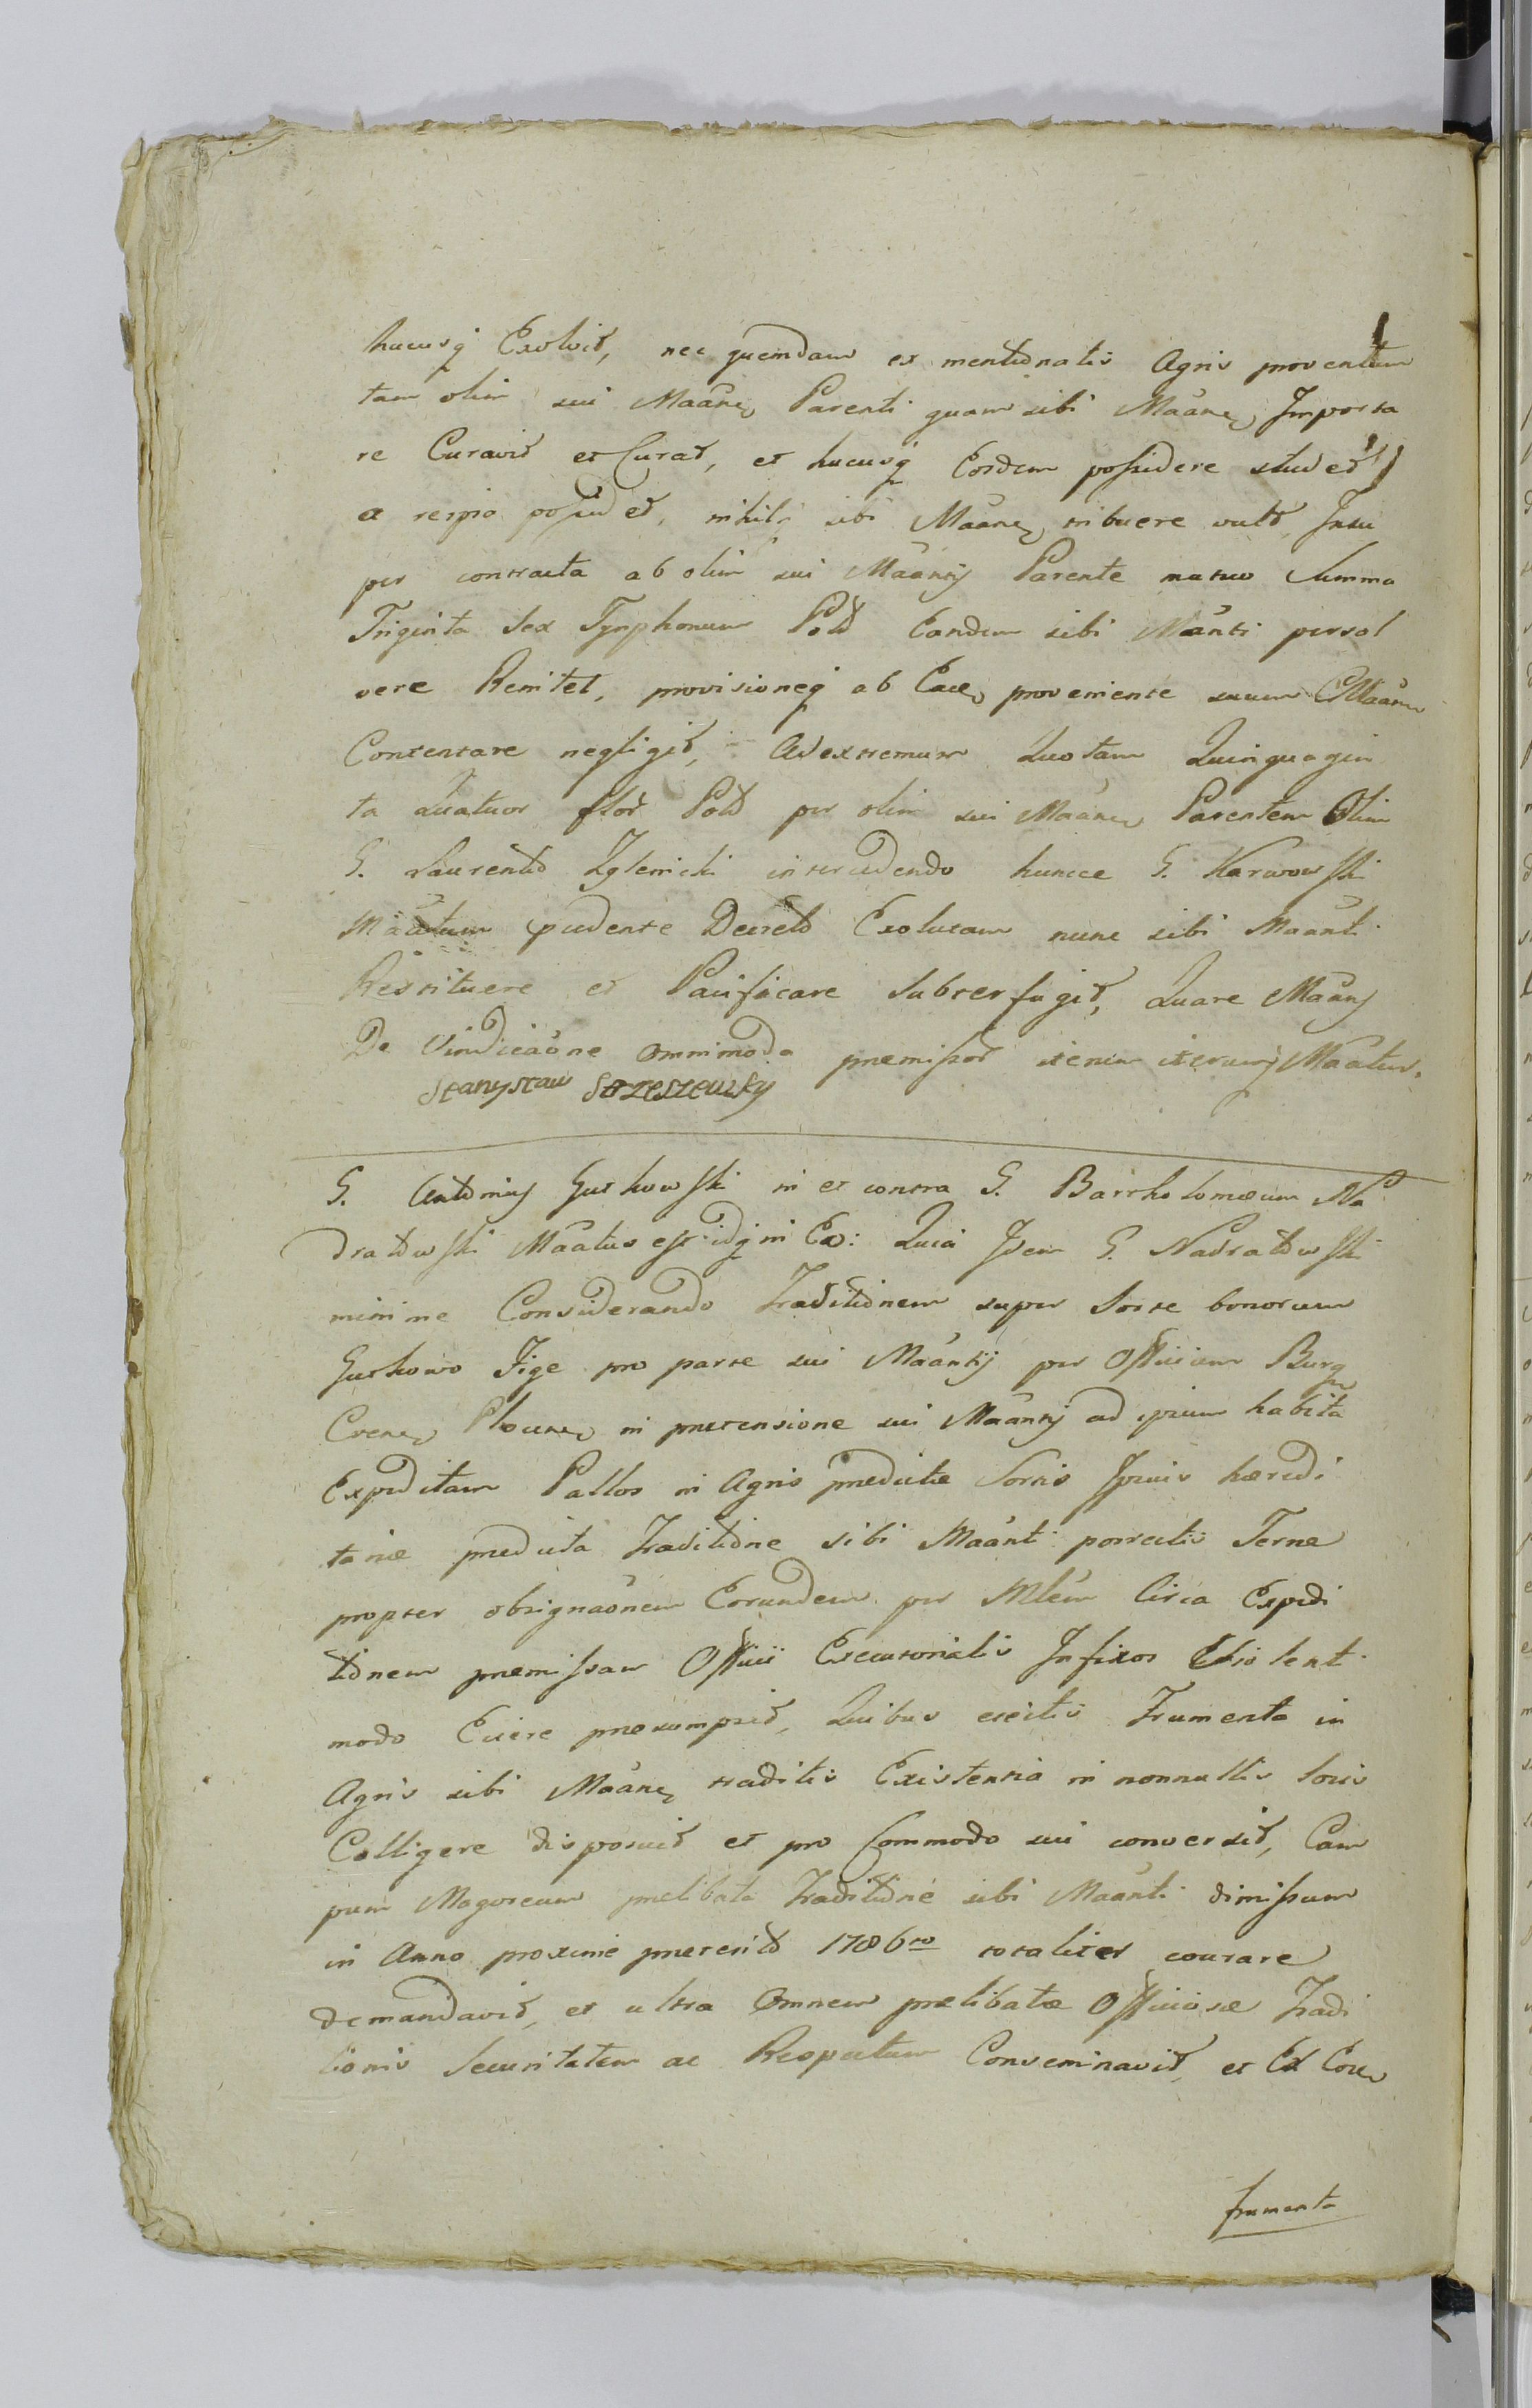 hucusq Exolvit, nec quemdam ex mentionatis Agris proventum
tam olim sui Maane Parenti quam sibi Maane Importa
re Curavit et Curat, et hucusq Eosdem possidere studet
a possidet, nihilq sibi Maane tribuere vult, Insu
per contracta ab olim sui Maantis Parente mutuo Summa
Triginta Sex Tynphonum Pold Eandem sibi Maanti persol
vere Renitet, provisioneq ab Eace proveniente suum Maan
Contentare negligit, Ad extremum Quotam Quinquagin
ta Quatuor flor Pold per olim sui Maane Parentem Olim
G. Laurentio Zglenicki intercedendo hunce G. Karwowski
Maatum Decreto Exolutam nunc sibi Maanti
Restituere et Pacificare Subterfugit, Quare Maans
De Vindicaone Omnimoda premissor Maatur.
Stanystaw Strzeszewsky
G. Antonius Gutkowski in et contra G. Bartholomæum Na
dratowski Maatus est idq in Eo: Quia Idem G. Nadratowski
minime Considerando Traditionem super Sorte bonorum
Gutkowo Jige pro parte sui Maantis per Officium Burg
Crene Plocen in pretensione sui Maantis ad ipsum habita
Expeditam Pallos in Agris predictæ Sortis Ipsius hæredi
tariæ predicta Traditione sibi Maanti porrectis Terræ
propter obsignaonem Eorundem per Mlem Circa Expedi
tionem premissam Officii Executorialis Infixos Violenti
modo Eiicere præsumpsit, Quibus eiectis Frumenta in
Agris sibi Maane traditis Existentia in nonnullis locis
Colligere disposuit et pro Commodo sui conversit, Cam
pum prelibata Traditione sibi Maanti dimissum
in Anno proxime preterito 1786to totaliter
demandavit, et ultra Omnem prælibatæ Officiosæ Tradi
tionis Securitatem ac Respectum Conseminavit, et Ex Eoce
frumenta